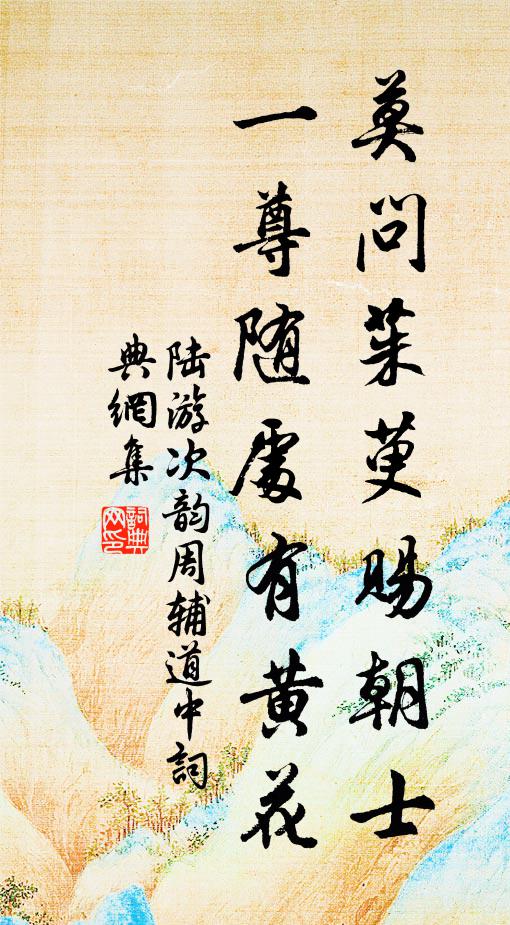 莫问茱萸赐朝士
一尊随处有黄花
陆游次韵周辅道中词
典网集
词典网印